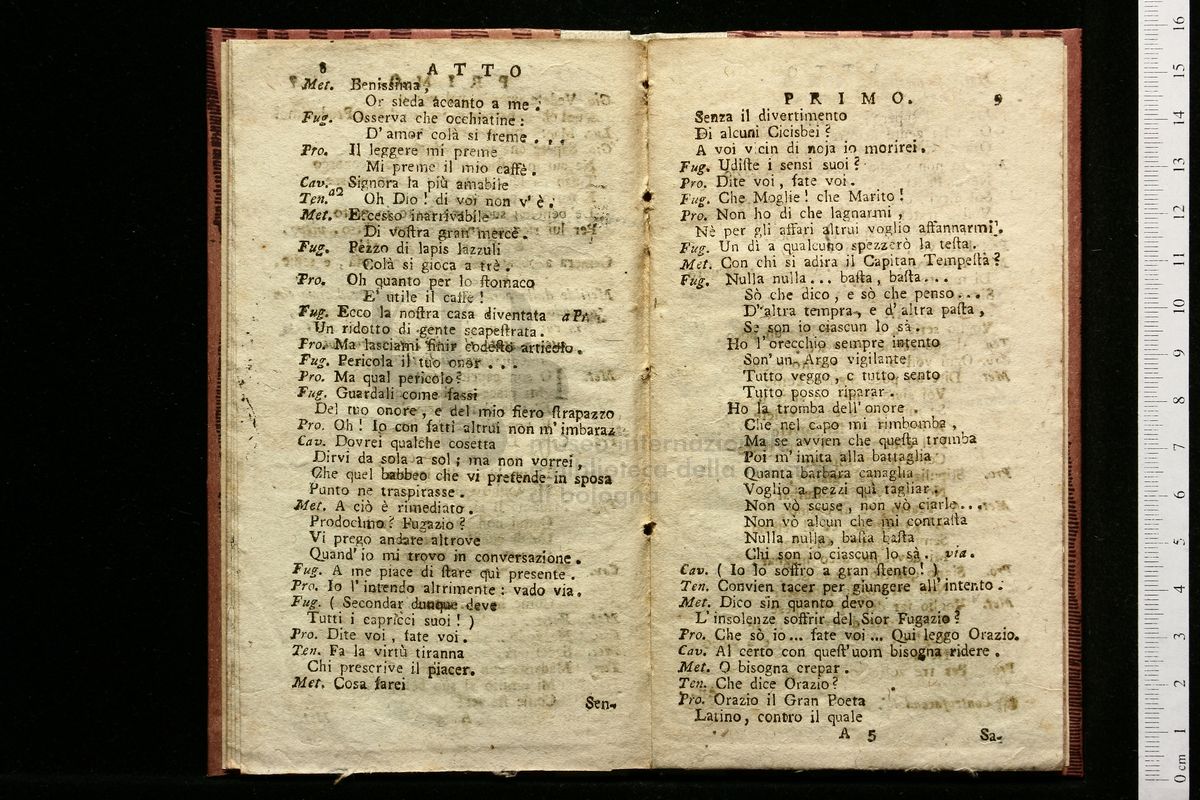 8 ATTO
Met. Benissima,
Or sieda accanto a me:
Fug. Osserva che occhiatine:
D'amor colà si freme...
Pro. Il leggere mi preme
Mi preme il mio caffè.
Cav. Signora la più amabile
Ten. a2 Oh Dio! di voi non v'è.
Met. Eccesso inarrivabile
Di vostra gran mercè.
Fug. Pezzo di lapis lazzuli
Colà si gioca a trè.
Pro. Oh quanto per lo stomaco
E' utile il caffè!
Fug. Ecco la nostra casa diventata a Pr.
Un ridotto di gente scapestrata.
Pro. Ma lasciami finir codesto articolo.
Fug. Pericola il tuo onor...
Pro. Ma qual pericolo?
Fug. Guardali come fassi
Del tuo onore, e del mio fiero strapazzo
Pro. Oh! Io con fatti altrui non m'imbaraz
Cav. Dovrei qualche cosetta
Dirvi da sola a sol; ma non vorrei,
Che quel babbeo che vi pretende in sposa
Punto ne traspirasse.
Met. A ciò è rimediato.
Prodocimo? Fugazio?
Vi prego andare altrove
Quand'io mi trovo in conversazione.
Fug. A me piace di stare quì presente.
Pro. Io l'intendo altrimente: vado via.
Fug. (Secondar dunque deve
Tutti i capricci suoi!)
Pro. Dite voi, fate voi.
Ten. Fa la virtù tiranna
Chi prescrive il piacer.
Met. Cosa farei
Sen-
PRIMO. 9
Senza il divertimento
Di alcuni Cicisbei?
A voi vicin di noja io morirei.
Fug. Udiste i sensi suoi?
Pro. Dite voi, fate voi.
Fug. Che Moglie! che Marito!
Pro. Non ho di che lagnarmi,
Nè per gli affari altrui voglio affannarmi.
Fug. Un dì a qualcuno spezzerò la testa.
Met. Con chi si adira il Capitan Tempesta?
Fug. Nulla nulla... basta, basta...
Sò che dico, e sò che penso...
D'altra tempra, e d'altra pasta,
Se son io ciascun lo sà.
Ho l'orecchio sempre intento
Son' un Argo vigilante
Tutto veggo, e tutto sento
Tutto posso riparar.
Ho la tromba dell'onore.
Che nel capo mi rimbomba,
Ma se avvien che questa tromba
Poi m'imita alla battaglia
Quanta barbara canaglia
Voglio a pezzi quì tagliar.
Non vò scuse, non vò ciarle...
Non vò alcun che mi contrasta
Nulla nulla, basta basta
Chi son io ciascun lo sà. via.
Cav. (Io lo soffro a gran stento!)
Ten. Convien tacer per giungere all'intento.
Met. Dico sin quanto devo
L'insolenze soffrir del Sior Fugazio?
Pro. Che sò io... fate voi... Qui leggo Orazio.
Cav. Al certo con quest'uom bisogna ridere.
Met. O bisogna crepar.
Ten. Che dice Orazio?
Pro. Orazio il Gran Poeta
Latino, contro il quale
A 5 Sa-
museo internazionale
biblioteca della musica
di bologna
0 cm 1 2 3 4 5 6 7 8 9 10 11 12 13 14 15 16